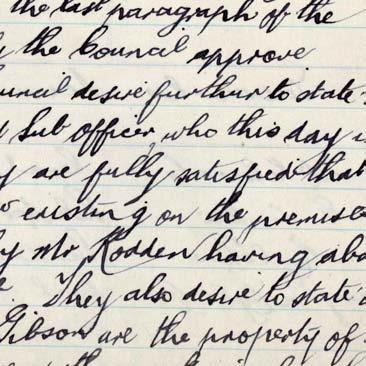 the last paragraph of the
the Council approve
uncil desire furthur to state
Sub officer, who this day i
y are fully satisfied that
existing on the premises
y Mr Rodden having aba
e. They also desire to state
Gibson are the property of